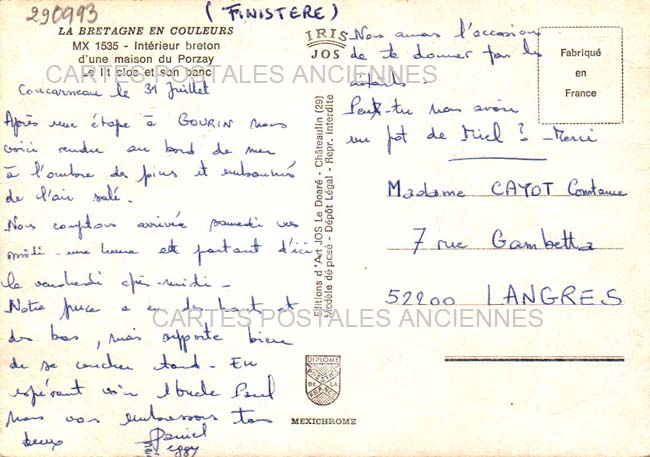 290993
(FINISTERE)
LA BRETAGNE EN COULEURS
MX 1535 - Intérieur breton
d'une maison du Porzay
Le lit clos et son banc
CARTES POSTALES ANCIENNES
IRIS
JOS
Fabriqué
en
France
Concarneau le 31 juillet
Après une étape à GOURIN nous
voici rendu au bord de mer
à l'ombre des pins et embaumés
de l'air salé.
Nous comptons arriver samedi vers
midi - une heure en partant d'ici
le vendredi après-midi -
Notre puce a eu des hauts et
des bas, mais supporte bien
de se coucher tard - En
espérant voir l'Oncle Paul
nous vous embrassons tous
deux
Peggy
Editions d'Art JOS Le Doaré - Châteaulin (29)
Modèle déposé - Dépôt Légal - Repr. Interdite
Nous aurons l'occasion
de te donner par les
Peux-tu nous avoir
un pot de Miel ? - Merci
Madame CAYOT Constance
7 rue Gambetta
52200 LANGRES
CARTES POSTALES ANCIENNES
DIPLOME
DE LA
FRANCE
MEXICHROME